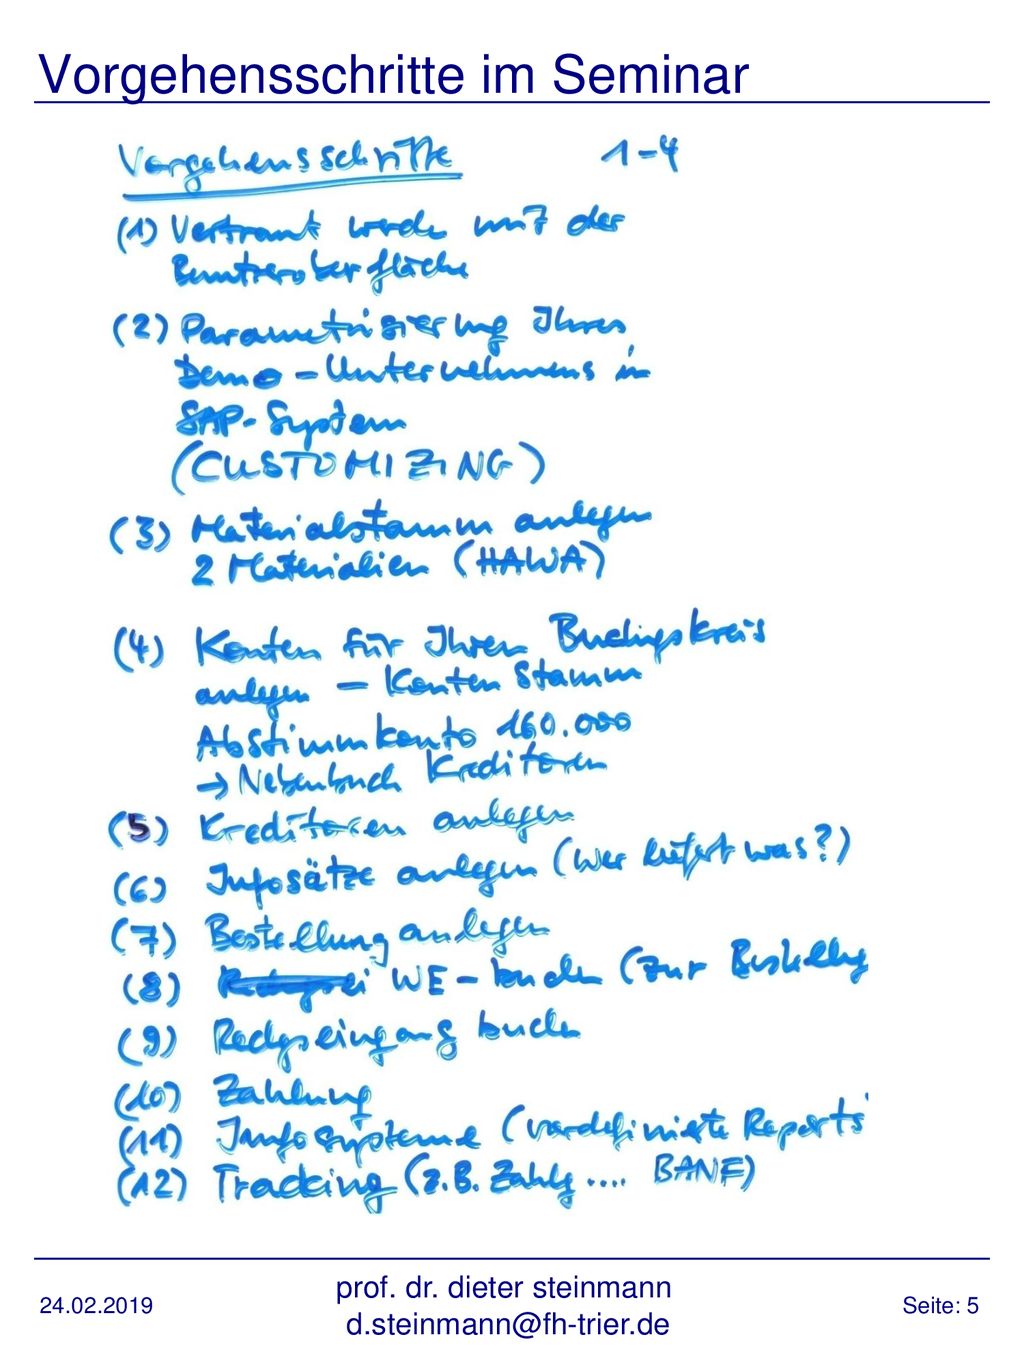 Vorgehensschritte im Seminar
Vorgehensschritte 1-4
(1) Vertraut werden mit der
Benutzeroberfläche
(2) Parametrisierung Ihres
Demo - Unternehmens in
SAP-System
(CUSTOMIZING)
(3) Materialstamm anlegen
2 Materialien (HAWA)
(4) Konten für Ihren Buchungskreis
anlegen - Konten Stamm
Abstimmkonto 160.000
→ Nebenbuch Kreditoren
(5) Kreditoren anlegen
(6) Infosätze anlegen (Wer liefert was?)
(7) Bestellung anlegen
(8) WE - buchen (zur Bestellg
(9) Rechgseingang buchen
(10) Zahlung
(11) Infosysteme (vordefinierte Reports
(12) Tracking (z.B. Zahlg .... BANF)
prof. dr. dieter steinmann
24.02.2019 Seite: 5
d.steinmann@fh-trier.de